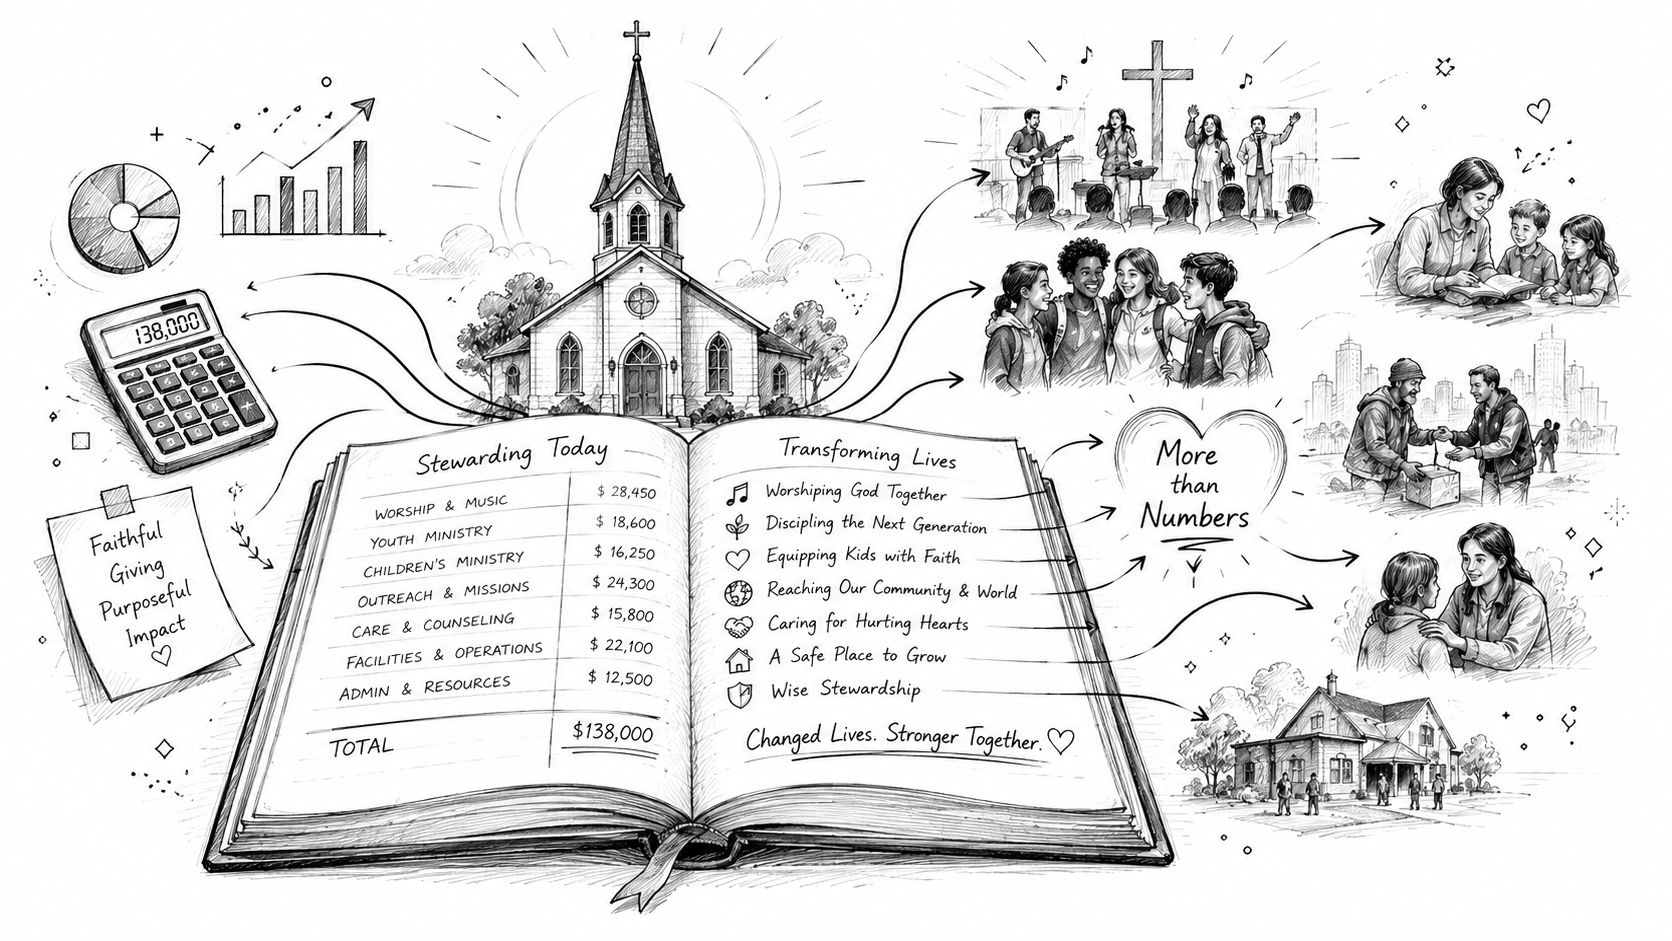 138,000
Faithful
Giving
Purposeful
Impact
Stewarding Today
WORSHIP & MUSIC $ 28,450
YOUTH MINISTRY $ 18,600
CHILDREN'S MINISTRY $ 16,250
OUTREACH & MISSIONS $ 24,300
CARE & COUNSELING $ 15,800
FACILITIES & OPERATIONS $ 22,100
ADMIN & RESOURCES $ 12,500
TOTAL $138,000
Transforming Lives
Worshiping God Together
Discipling the Next Generation
Equipping Kids with Faith
Reaching Our Community & World
Caring for Hurting Hearts
A Safe Place to Grow
Wise Stewardship
Changed Lives. Stronger Together.
More
than
Numbers